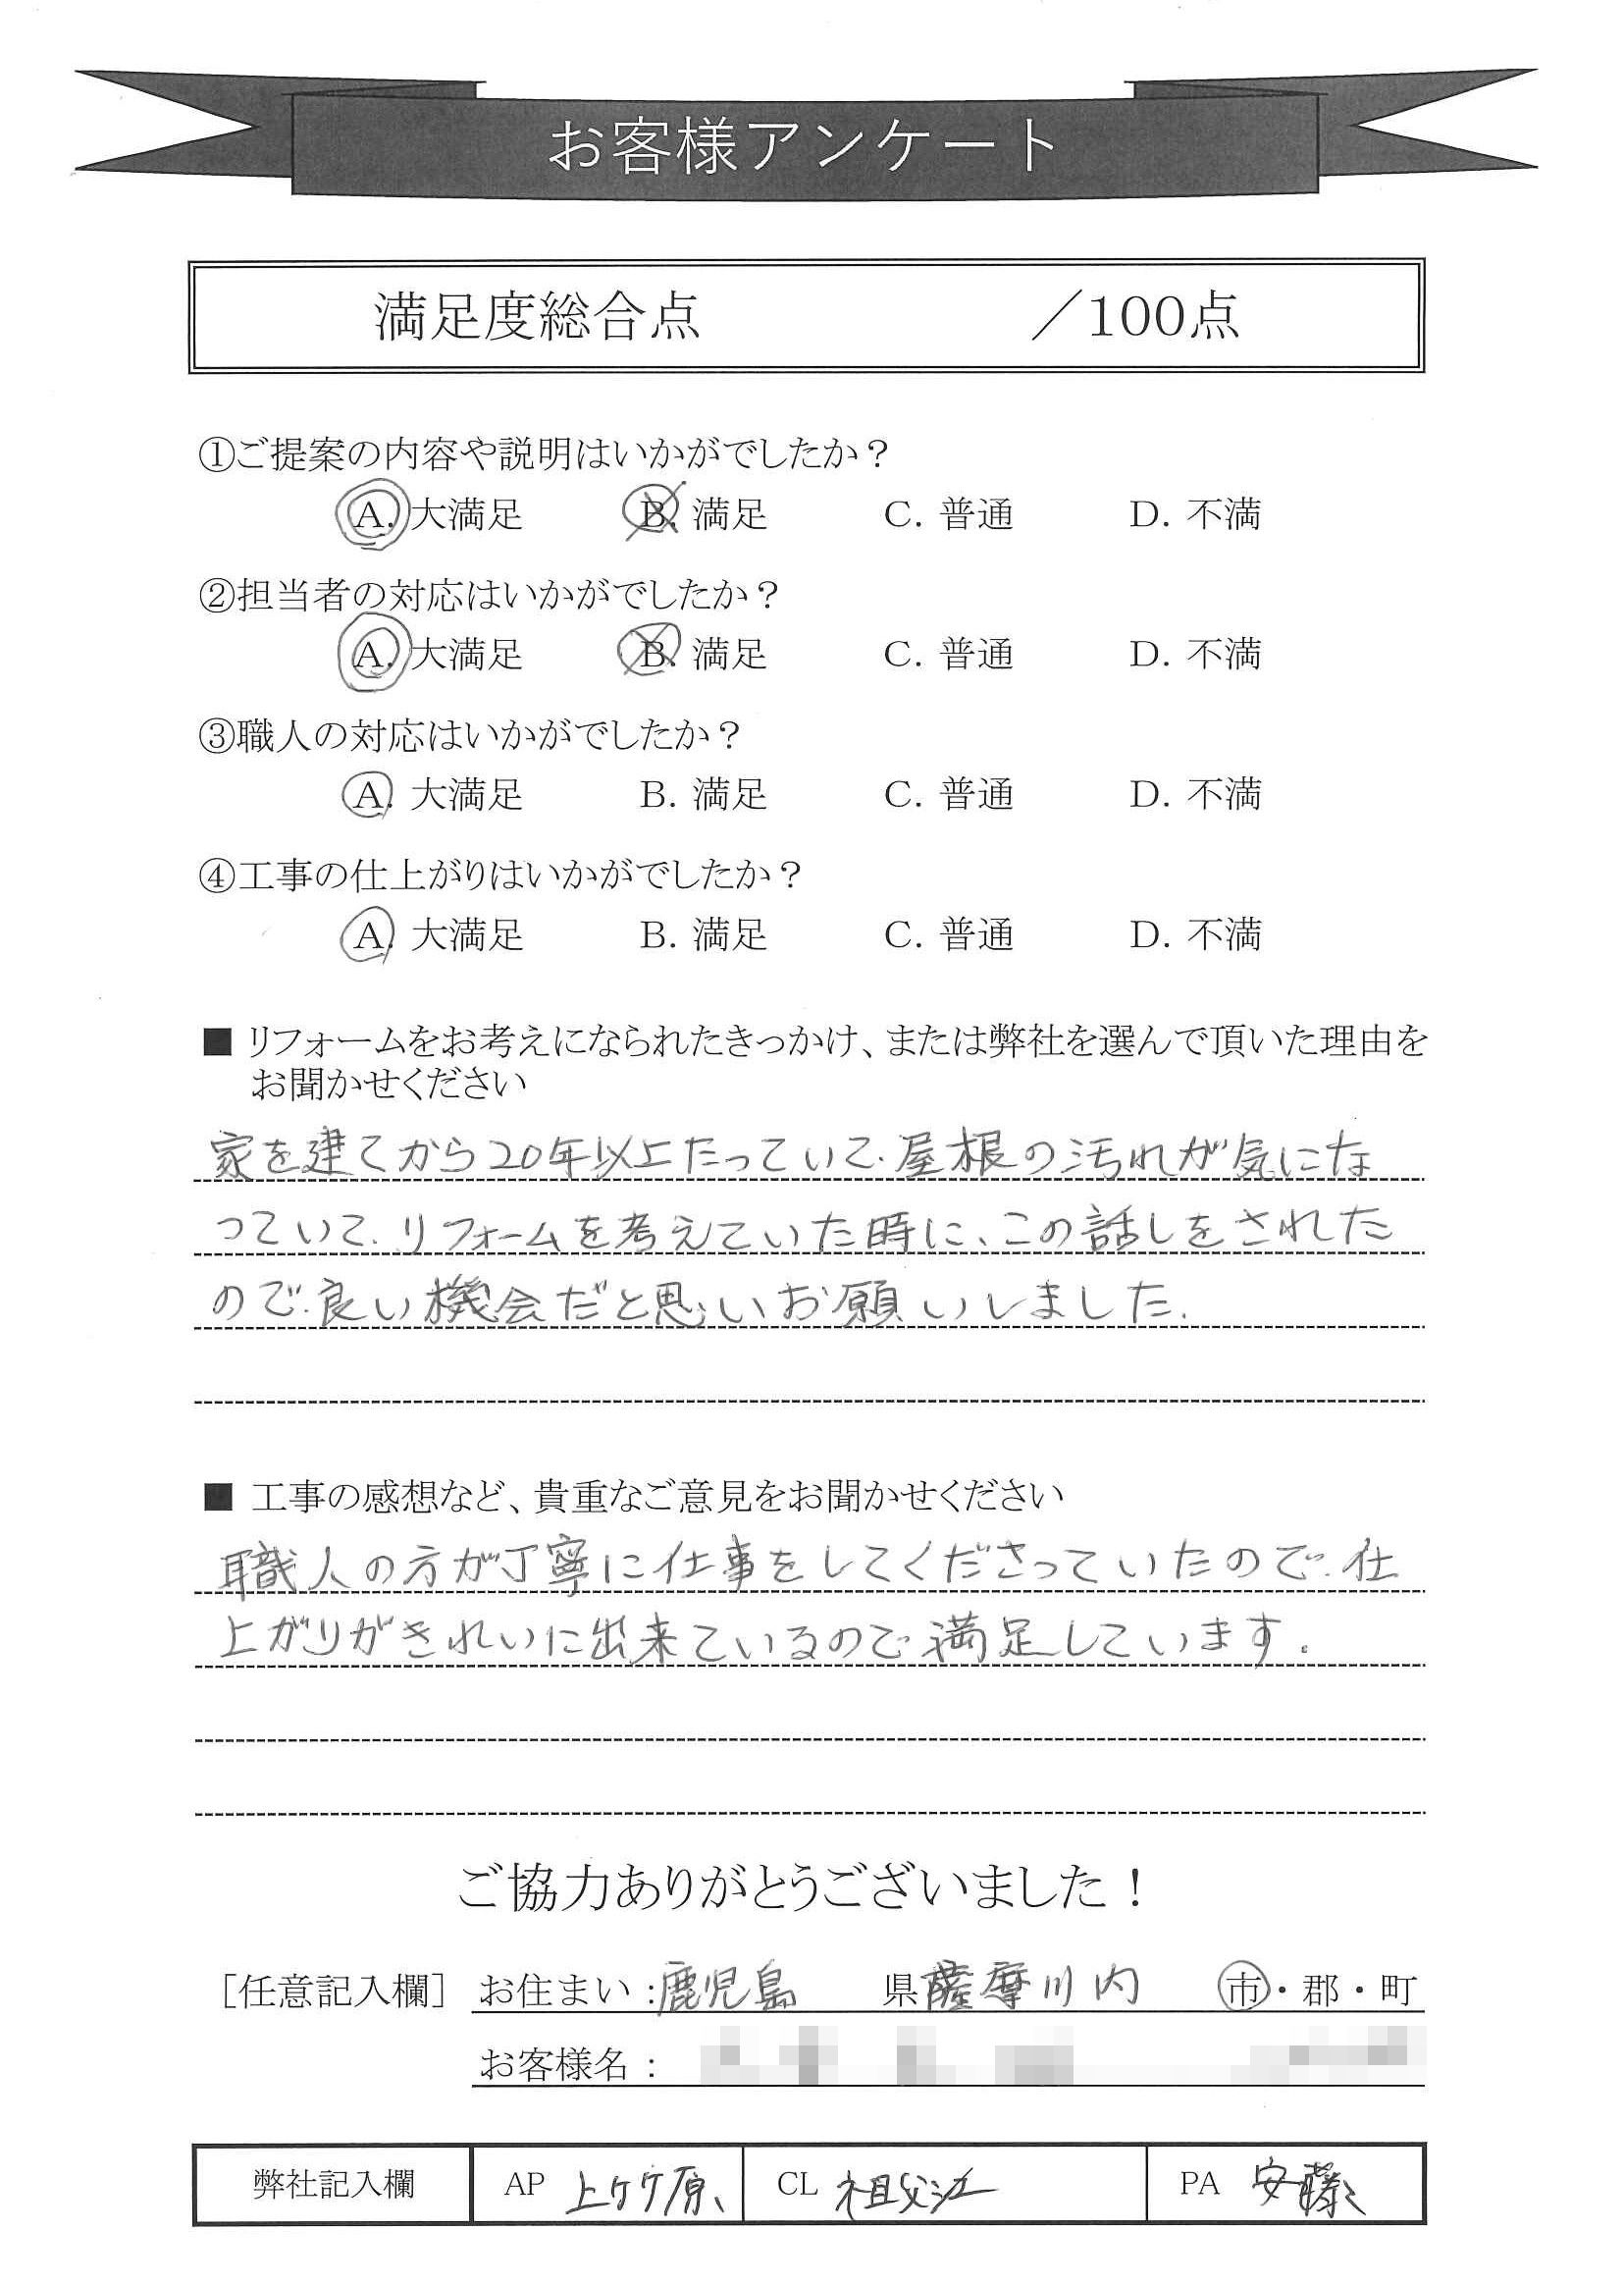 お客様アンケート
満足度総合点 ／100点
①ご提案の内容や説明はいかがでしたか？
A. 大満足 B. 満足 C. 普通 D. 不満
②担当者の対応はいかがでしたか？
A. 大満足 B. 満足 C. 普通 D. 不満
③職人の対応はいかがでしたか？
A. 大満足 B. 満足 C. 普通 D. 不満
④工事の仕上がりはいかがでしたか？
A. 大満足 B. 満足 C. 普通 D. 不満
■ リフォームをお考えになられたきっかけ、または弊社を選んで頂いた理由を
お聞かせください
家を建てから20年以上たっていて、屋根の汚れが気にな
っていて、リフォームを考えていた時に、この話しをされた
ので、良い機会だと思いお願いしました。
■ 工事の感想など、貴重なご意見をお聞かせください
職人の方が丁寧に仕事をしてくださっていたので、仕
上がりがきれいに出来ているので満足しています。
ご協力ありがとうございました！
［任意記入欄］ お住まい：鹿児島 県 薩摩川内 市・郡・町
お客様名：
弊社記入欄 AP 上ケ原 CL 祖父江 PA 安藤